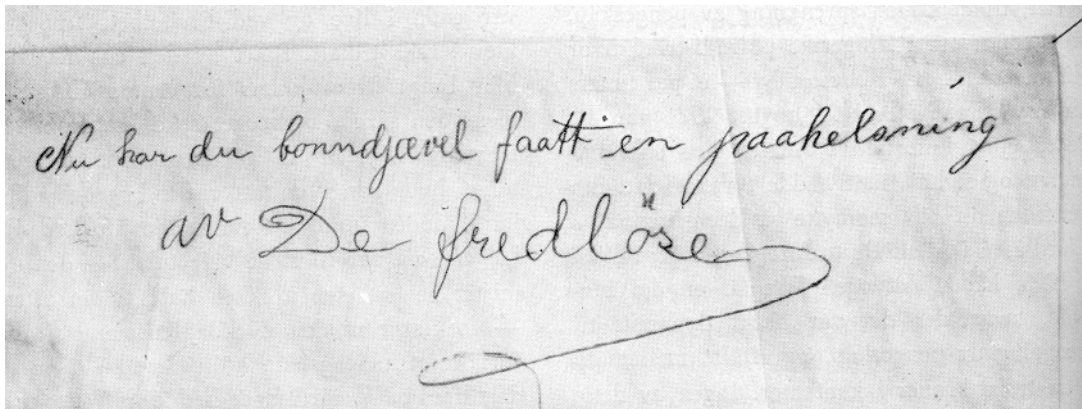 Nu har du bonndjævel faatt en paahelsning
av De fredlöse